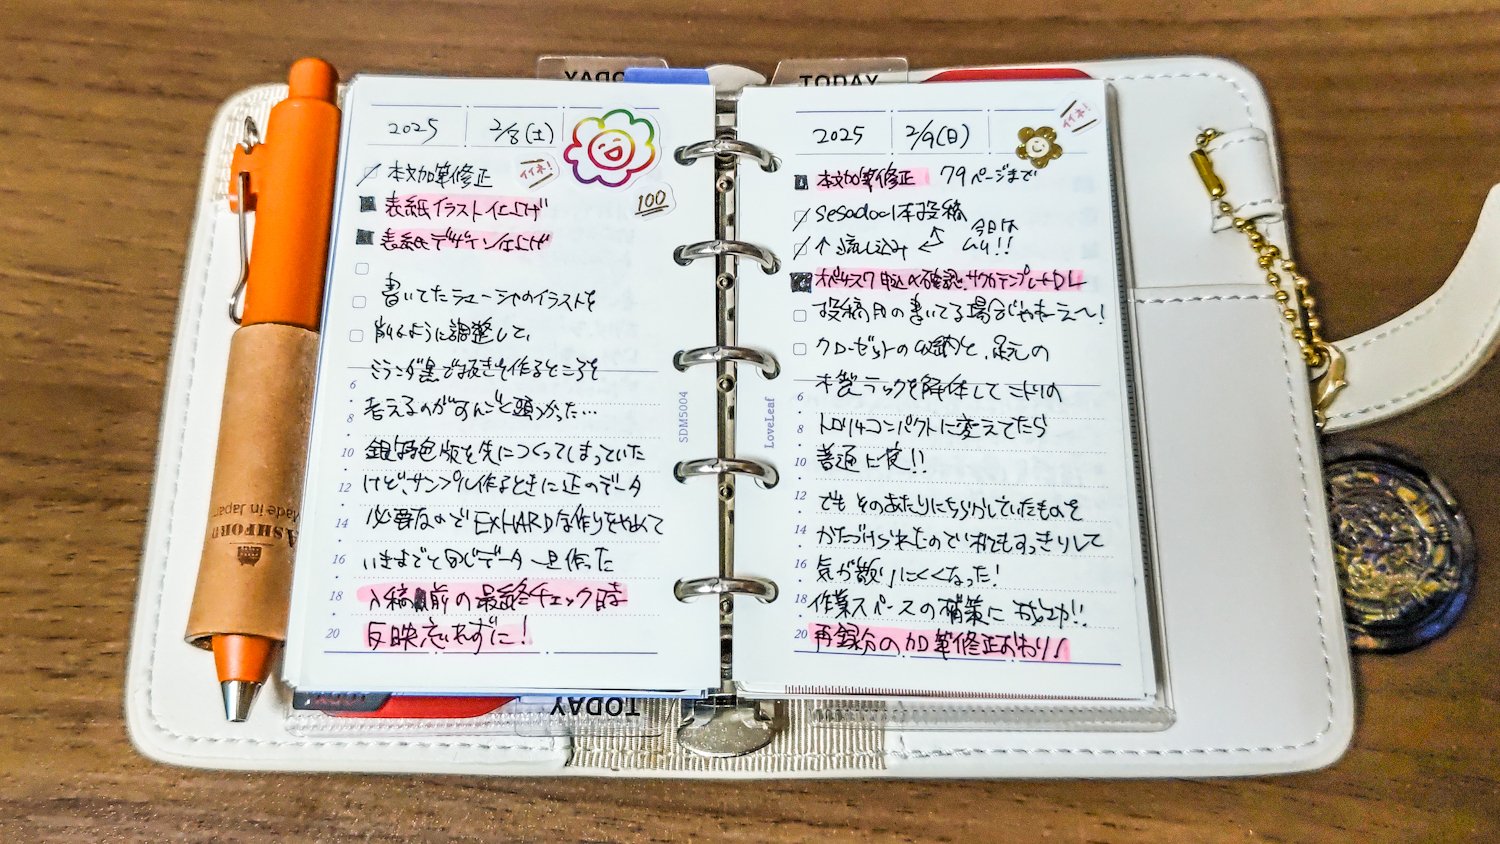 TODAY
TODAY
2025 2/8(土)
イイネ!
100
本文加筆修正
表紙イラスト仕上げ
表紙デザイン仕上げ
書いてたラューシャのイラストを
ように調整して、
ミランダ黒で抜きを作るところを
考えるのがすんごと頭つかった…
銀 色版を先につくってしまっていた
けど、サンプル作るときに正のデータ
必要なのでEXHARDな作りをやめて
いままでと同じデータ一旦作った
入稿前の最終チェック時
反映忘れずに!
6
8
10
12
14
16
18
20
SDM5004
2025 2/9(日)
イイネ!
本文加筆修正 79ページまで
sesadool本投稿
↑流し込み
今日は
ムリ!!
申込の確認、 テンプレートDL
投稿用の書いてる場合じゃねーえ〜!
クローゼットの収納と、足元の
木製ラックを解体してニトリの
トロリ4コンパクトに変えてたら
普通に夜!!
でもそのあたりにちらかしていたものを
かたづけられたので机もすっきりして
気が散りにくくなった!
作業スペースの構築に成功!!
再録分の加筆修正おわり!
6
8
10
12
14
16
18
20
LoveLeaf
ASHFORD
Made in Japan
TODAY